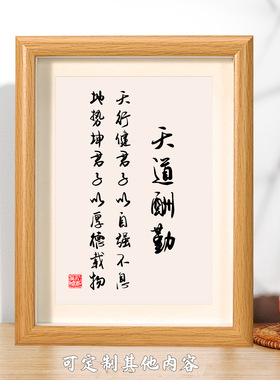 天道酬勤
天行健君子以自强不息
地势坤君子以厚德载物
可定制其他内容